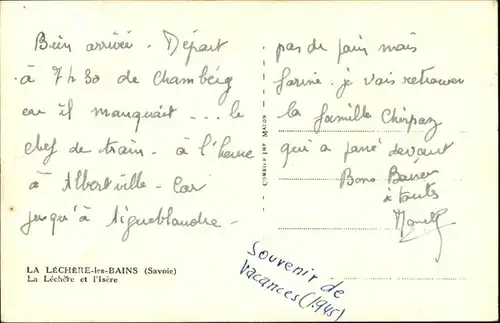 Bien arrivée. Départ
à 7h30 de Chambéry
car il manquait ... le
chef de train - à l'heure
à Albertville - Car
jusqu'à Aigueblanche -
LA LÉCHÈRE-les-BAINS (Savoie)
La Léchère et l'Isère
COMBIER IMP MACON
pas de pain mais
farine. je vais retrouver
la famille Chirpaz
qui a passé devant
Bons Baisers
à toutes
Souvenir de
vacances (1945)